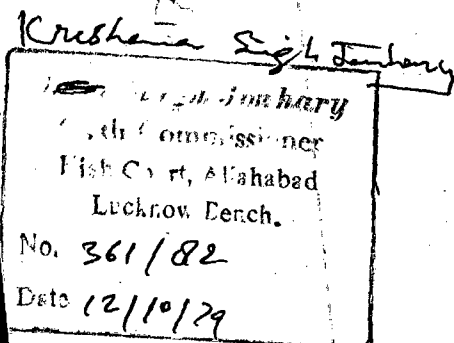 Krishana Singh Jauhary
Jauhary
Oath Commissioner
High Court, Allahabad
Lucknow Bench.
No. 361/82
Date 12/10/79